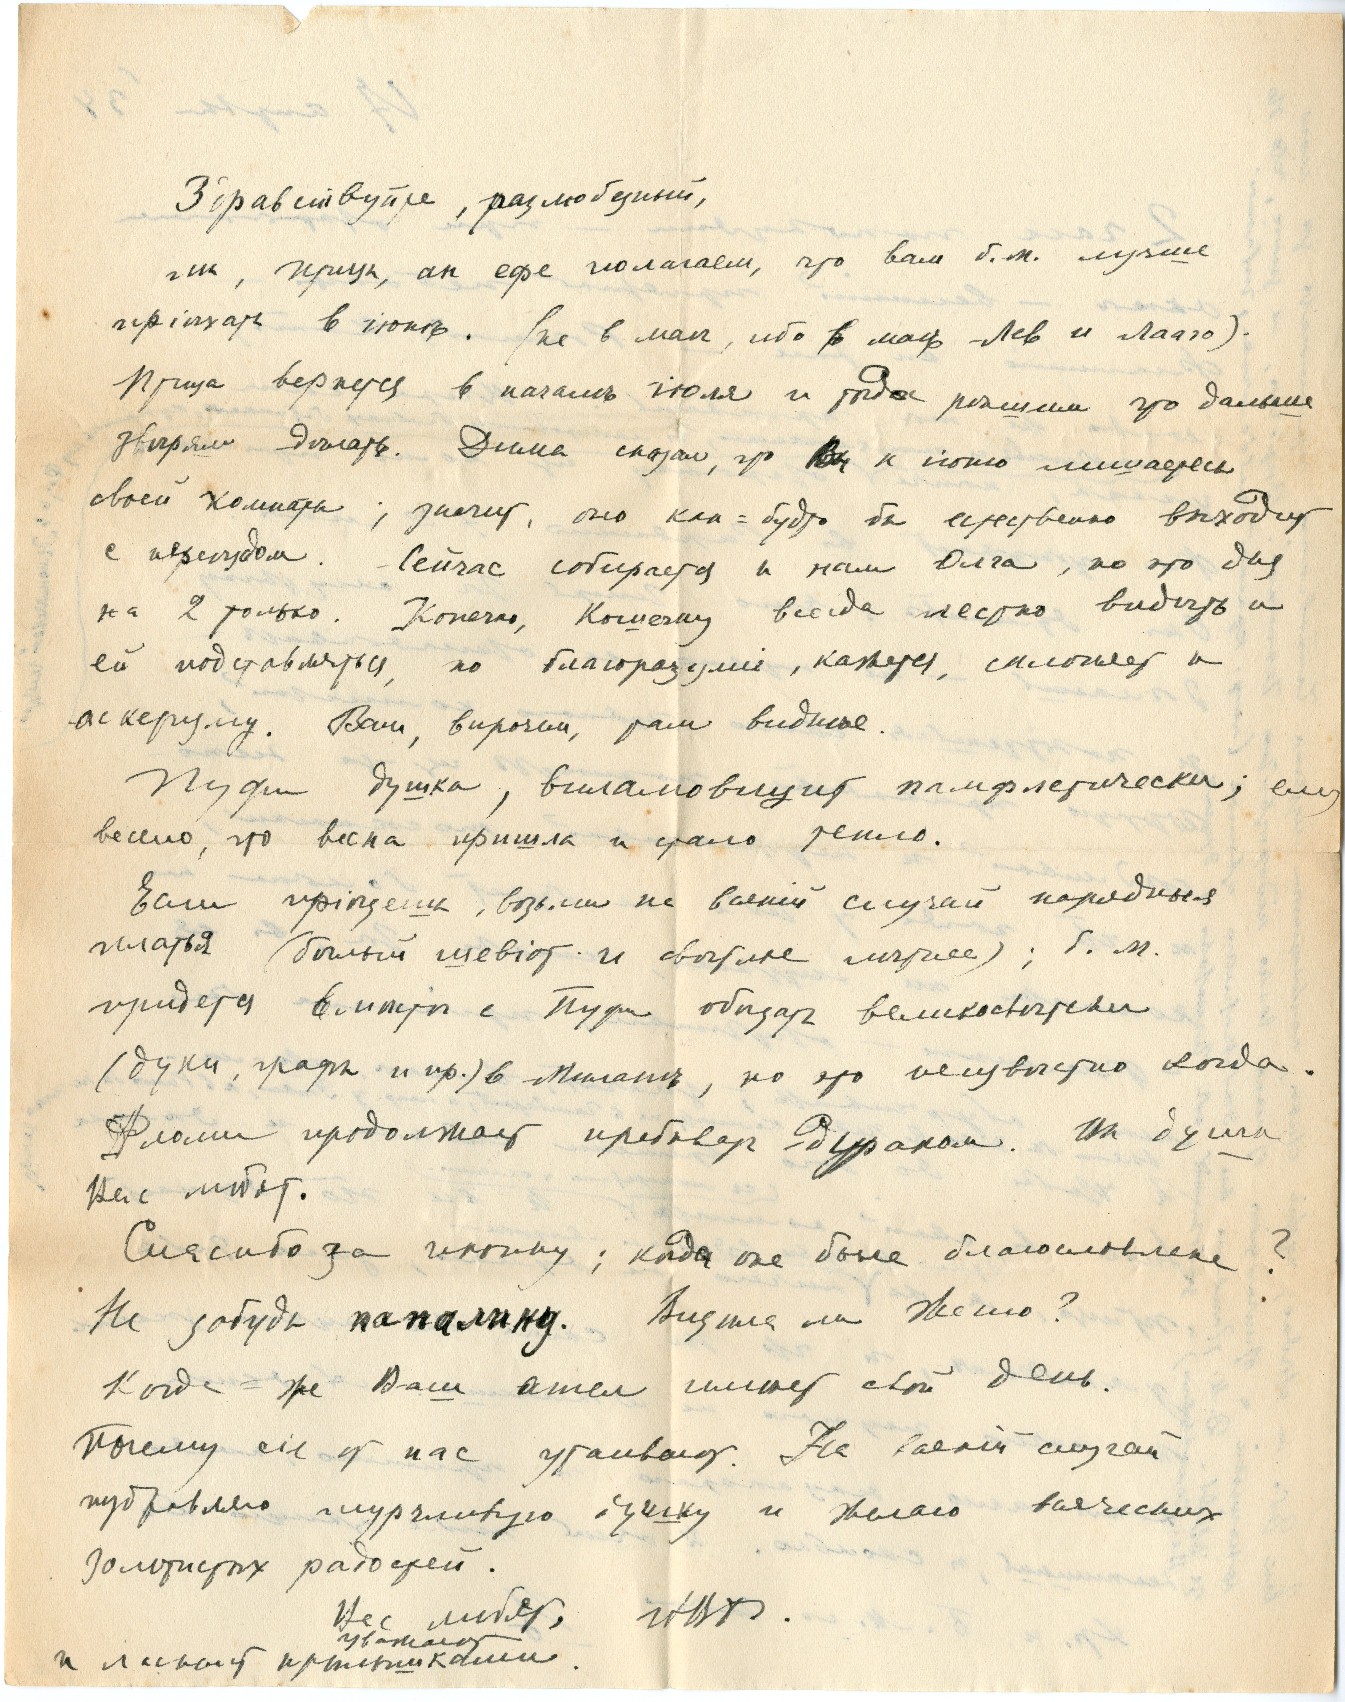 Здравствуйте, разлюбезный,
мы, Птица, ан ефе полагаем, что вам б.м. лучше
прiѣхать в iюнѣ. (не в маѣ, ибо в маѣ Лев и Лааго).
Птица вернется в началѣ iюля и тогда рѣшим что дальше
звѣрям дѣлать. Дима сказал, что Вы к iюню лишаетесь
своей комнаты; значит, оно как=будто бы естественно выходит
с переѣздом. Сейчас собирается к нам Олга, но это дня
на 2 только. Конечно, Кошечку всегда лестно видѣть и
ей подставляться, но благоразумiе, кажется, склоняет к
аскетизму. Вам, впрочем, там виднѣе.
Пуфи душка, виламовицит памфлетически; ему
весело, что весна пришла и стало тепло.
Если прiѣдешь, возьми на всякiй случай нарядныя
платья (бѣлый шевiот и свѣтлое лѣтнее); б. м.
придется вмѣстѣ с Пуфи обѣдать великосвѣтски
(дуки, графы и пр.) в Миланѣ, но это неизвѣстно когда.
Флами продолжает пребывать дураком. Мы душки
Нас любят.
Спасибо за иконку; когда она была благословлена?
Не забудь папалину. Видѣла ли Женю?
Когда=же Ваш ангел имѣет свой день.
Почему сiе от нас утаивают. На всякiй случай
поздравляю мурчливую душку и желаю всяческих
золотистых радостей.
Нас любят,
уважают
и ласкают крылышками.